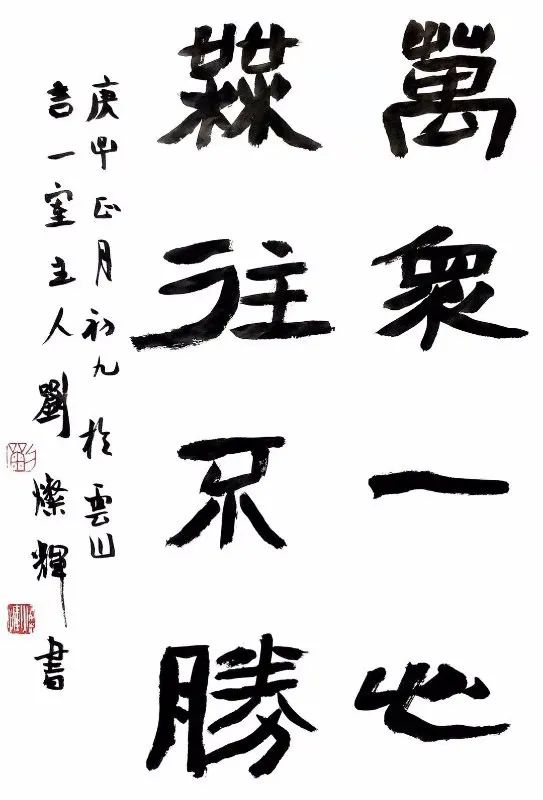 萬衆一心
無往不勝
庚子正月初九於雲山
吉一室主人劉燦輝書